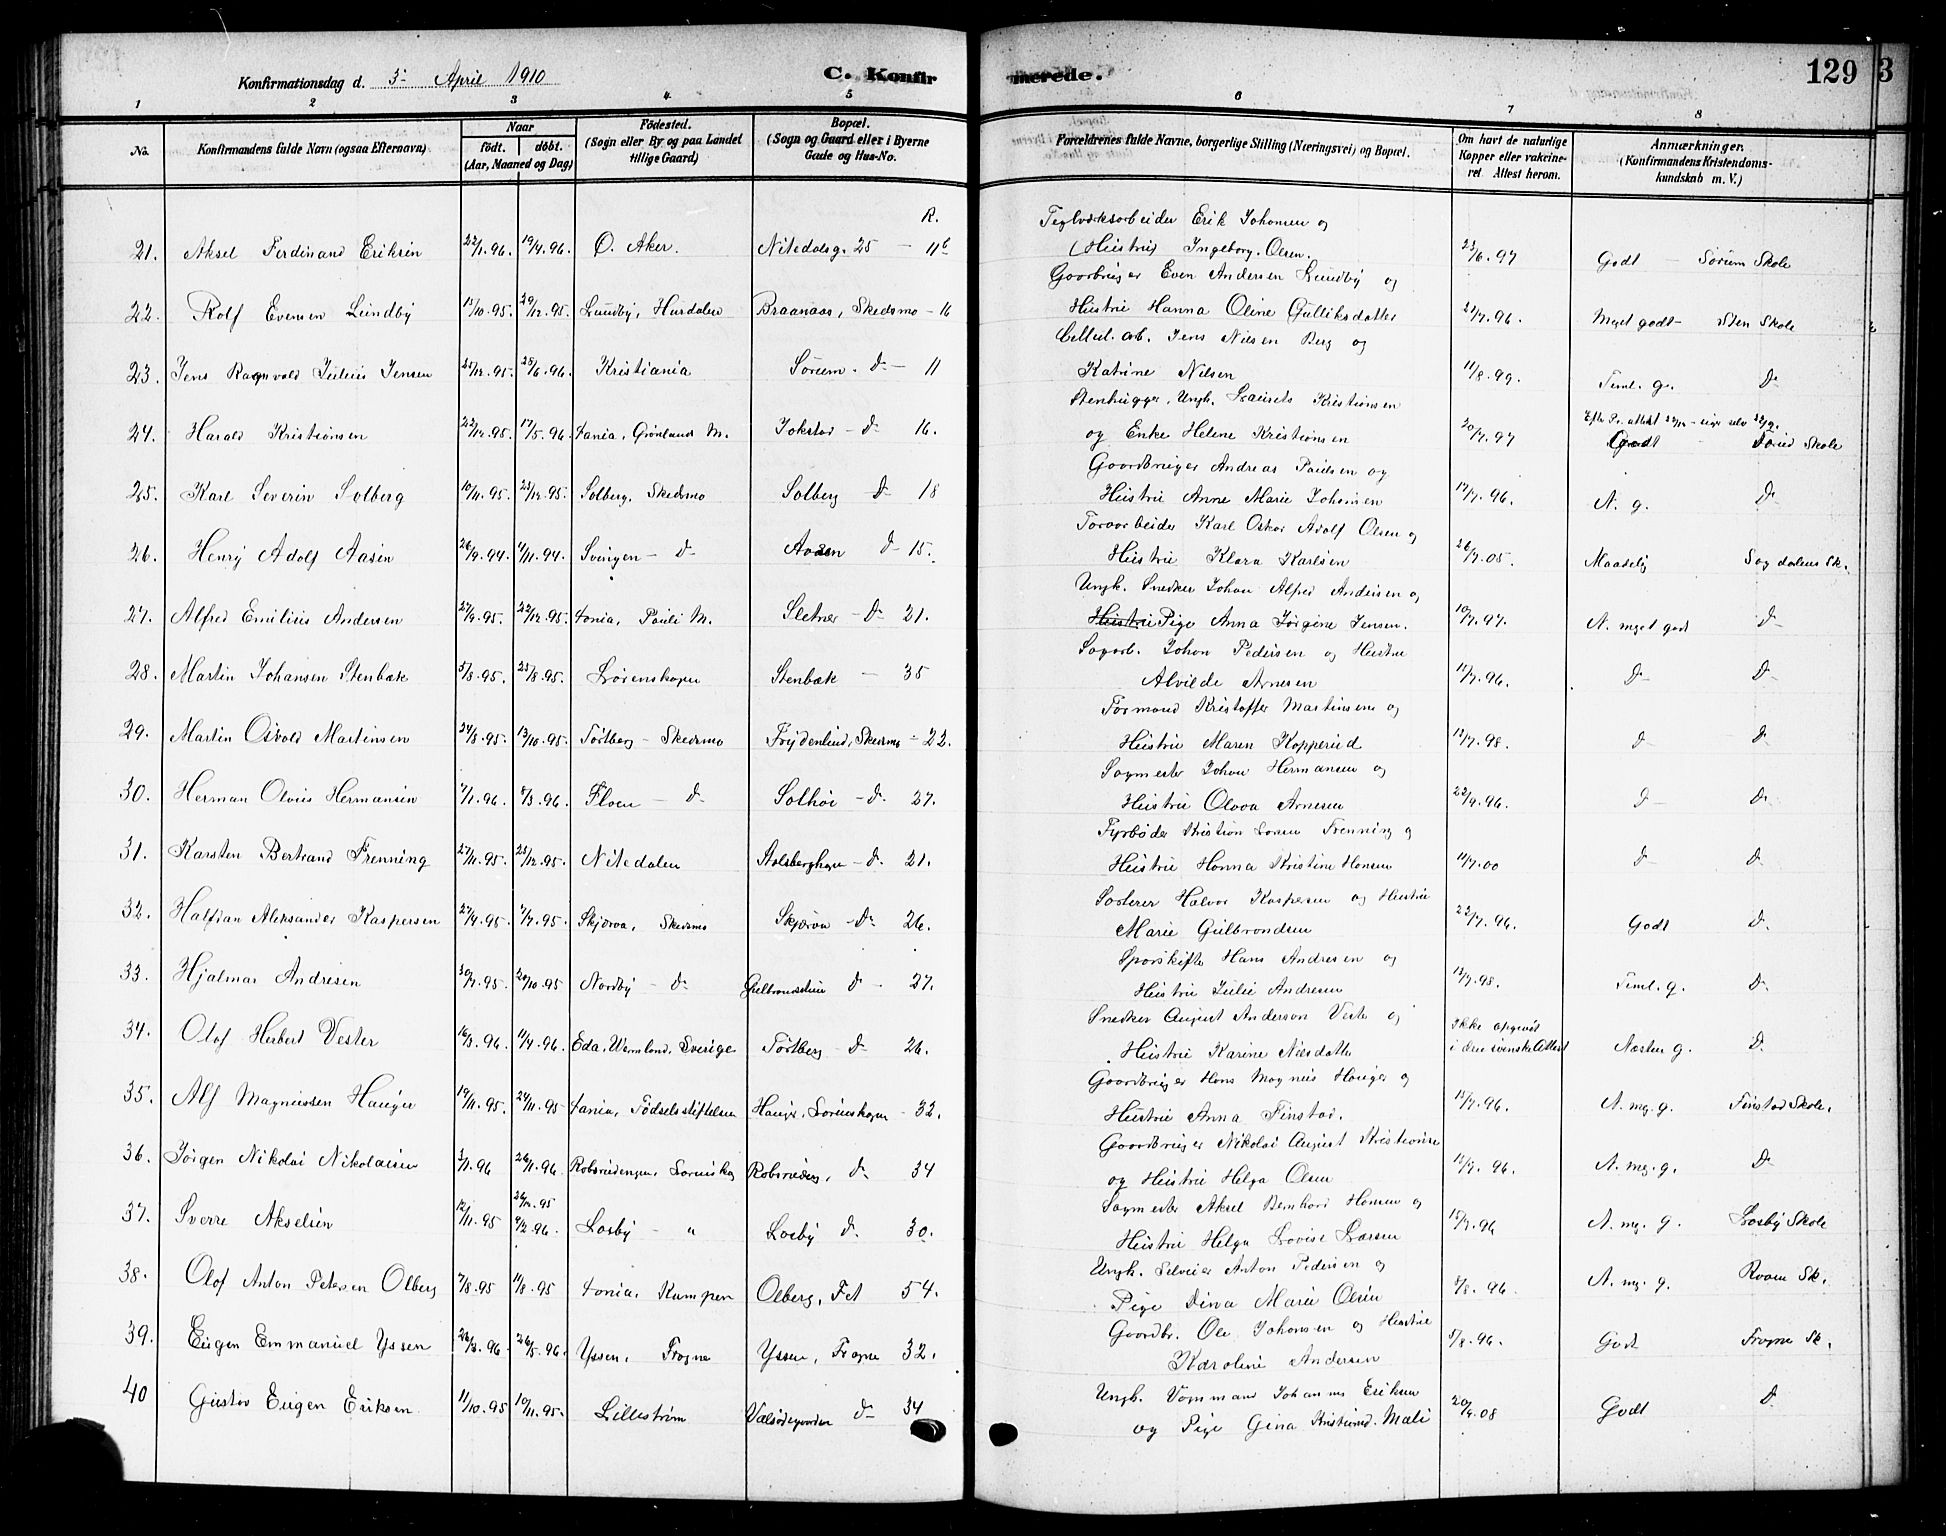 Konfirmationsdag d. 3. April 1910 C. Konfirmerede. 129 3
1 2 3 4 5 6 7 8
No. Konfirmandens fulde Navn (ogsaa Efternavn). Naar født. døbt. (Aar, Maaned og Dag) Fødested. (Sogn eller By og paa Landet tillige Gaard) Bopæl. (Sogn og Gaard eller i Byerne Gade og Hus-No. Forældrenes fulde Navne, borgerlige Stilling (Næringsvei) og Bopæl. Om havt de naturlige Kopper eller vakcineret. Attest herom. Anmærkninger. (Konfirmandens Kristendomskundskab m. V.)
R.
Teglværksarbeider Erik Johansen og
21. Aksel Ferdinand Eriksen 22/1.96. 19/4.96. Ø. Aker. Nitedalsg. 25 – 11b (Hustru) Ingeborg Olsen. 23/6.97 Godt – Sørum Skole
Gaardbruger Even Andersen Lundby og
22. Rolf Evensen Lundby 15/10.95. 29/12.95. Lundby, Hurdalen Braanaas, Skedsmo – 16 Hustru Hanna Oline Gulliksdatter 21/7.96. Meget godt – Sten Skole
Cellul. arb. Jens Nilsen Berg og
23. Jens Ragnvald Julius Jensen 25/12.95. 28/6.96. Kristiania Sørum. D – 11 Katrine Nilsen 11/8.99. Teml. g. D
Stenhugger, Ungk. Laurits Kristiansen
24. Harald Kristiansen 22/12.95. 17/5.96. Xania, Grønlands M. Jokstad – D 16. og Enke Helene Kristiansen 20/7.97 Efter Pr. attest 22/12 – siger selv 22/9. Godt Skole
Gaardbruger Andreas Paulsen og
25. Karl Severin Solberg 10/11.95. 25/12.95. Solberg, Skedsmo Solberg D 18 Hustru Anne Marie Johansen 17/7.96. N. g. D
Karl Oskar Adolf Olsen og
26. Henry Adolf Aasen 26/9.94. 4/11.94. Svingen – D Aasen D 15. Hustru Klara Karlsen 26/7.05. Maadelig Sagdalens Sk.
Ungk. Snedker Johan Alfred Andersen og
27. Alfred Emilius Andersen 27/9.95. 22/12.95. Xania, Pauli M. Sletner – D 21. Hustru Pige Anna Jørgine Jensen. 10/7.97. N. meget godt D
Sagarb. Johan Pedersen og Hustru
28. Martin Johansen Stenbæk 5/3.95. 25/8.95. Lørenskogen Stenbæk – 35 Alvilde Arnesen 11/7.96. D D
Formand Kristoffer Martinsen og
29. Martin Osvald Martinsen 24/8.95. 13/10.95. Tortberg – Skedsmo Frydenlund, Skedsmo – 22. Hustru Maren Kopperud 12/7.98. D D
Sagmester Johan Hermansen og
30. Herman Olvius Hermansen 7/1.96. 8/3.96. Floen – D Solhøi – D. 27. Hustru Olava Arnesen 22/9.96. D D
Fyrbøder Kristian Frenning og
31. Karsten Bertrand Frenning 27/11.95. 25/12.95. Nitedalen Stalsberghagen – D. 21. Hustru Hanna Kristine Hansen 11/7.00 D D
Sorterer Halvor Kaspersen og Hustru
32. Halfdan Aleksander Kaspersen 27/4.95. 7/7.95. Skjærva, Skedsmo Skjærva – D 26. Marie Gulbrandsen 22/7.96. Godt D
Sporskifter Hans Andresen og
33. Hjalmar Andresen 30/7.95. 20/10.95 Nordby – D D – 27. Hustru Julie Andresen 12/7.98. Teml. g. D
Snedker August Anderson Vester og
34. Olof Herbert Vester 16/3.96. 11/4.96. Eda, Wermland, Sverige Tortberg D 26. Hustru Karine Nilsdatter Ikke opgivet i den svenske Attest Næsten g. D
Gaardbruger Hans Magnus Hauger og
35. Alf Magnussen Hauger 19/11.95. 24/11.95. Xania, Fødselsstiftelsen Hauger, Lørenskogen – 32. Hustru Anna Finstad. 15/7.96. N. mg. g. Finstad Skole.
Gaardbruger Nikolai August Kristiansen
36. Jørgen Nikolai Nikolaisen 3/1.96 26/1.96. Robsrudengen, Lørenskog Robsruden, D 34 og Hustru Helga Olsen 15/7.96. N. mg. g. D
26/12.95 Sagmester Aksel Bernhard Hansen og
37. Sverre Akselsen 12/11.95 9/2.96. Losby – " Losby D 30. Hustru Helga Lovise Larsen 15/7.96 N. mg. g. Losby Skole
Ungk. Anton Pedersen og
38. Olof Anton Petersen Olberg 7/8.95 11/8.95 Xania, Kampen Olberg, Fet 54. Pige Dina Marie Olsen 8/8.96. N. mg. g. Roven Sk.
Gaardbr. Ole Johansen og Hustru
39. Eugen Emmanuel Yssen 26/3.96. 26/5.96. Yssen, Frogne Yssen, Frogne 32. Karoline Andersen 5/8.96. Godt Frogne Sk.
Ungk. Johannes Eriksen
40 Gustav Eugen Eriksen 11/10.95 10/11.95. Lillestrøm D 34 og Pige Gina Mæli 20/4.08 Godt D